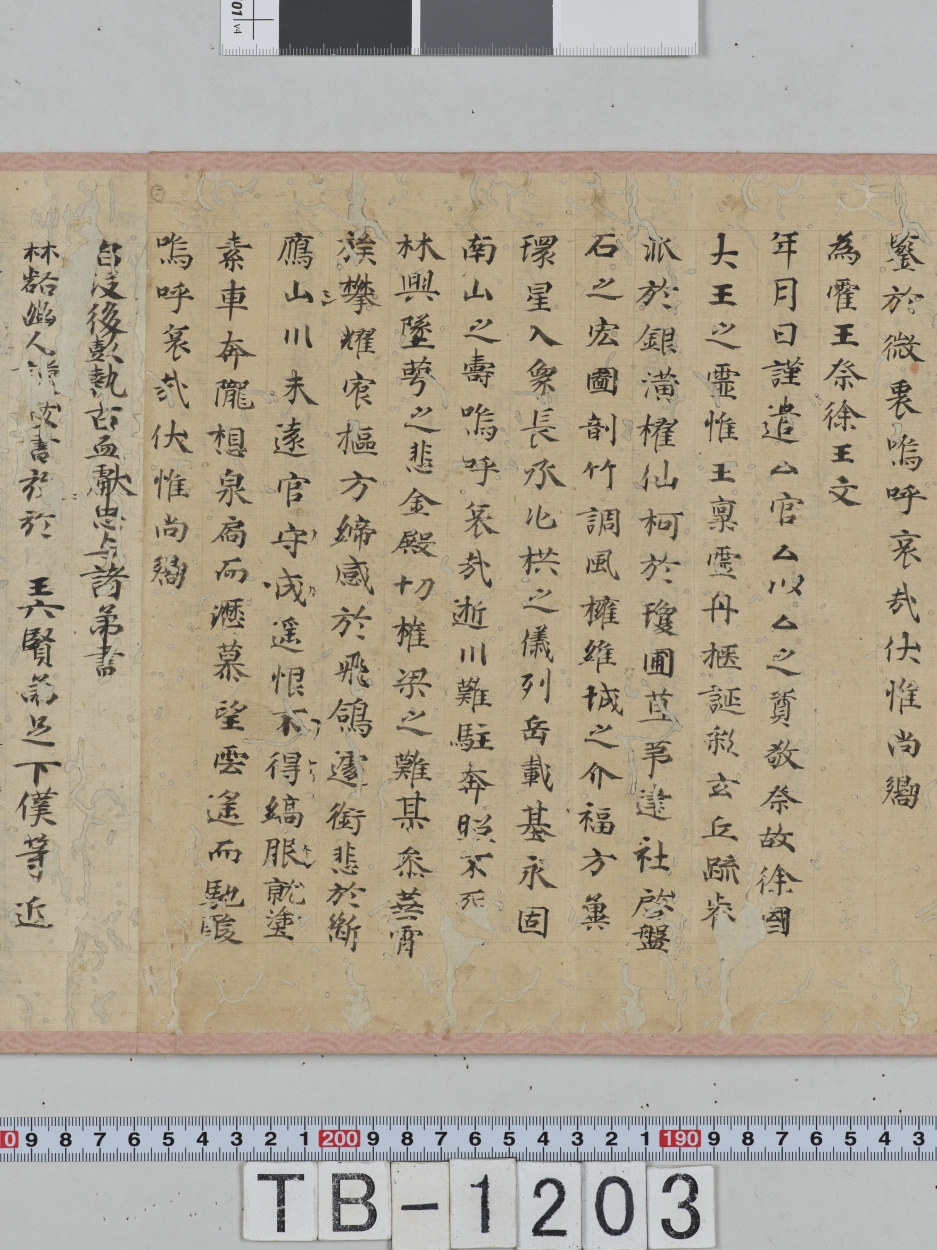 鑒於微衷嗚呼哀哉伏惟尚饗
為霍王祭徐王文
年月日謹遣厶官厶以厶之奠敬祭故徐國
大王之靈惟王稟靈丹掖誕彩玄丘疏
派於銀潢櫂仙柯於瓊圃苴茅建社啓盤
石之宏圖剖竹調風擁維城之介福方冀
環星入象長承北栱之儀列岳載基永固
南山之壽嗚呼哀哉逝川難駐奔照不
林興墜萼之悲金殿切摧梁之難某忝
攀耀宸樞方締感於飛鴒遽銜悲於斷
鴈山川未遠官守成遥恨不得縞服就塗
素車奔隴想泉扃而瀝慕望雲遥而馳酸
嗚呼哀哉伏惟尚饗
自沒後彭執古孟獻忠与諸弟書
林壑幽人書於 王六賢弟足下僕等 近
V4
10 9 8 7 6 5 4 3 2 1 200 9 8 7 6 5 4 3 2 1 190 9 8 7 6 5 4 3
TB-1203